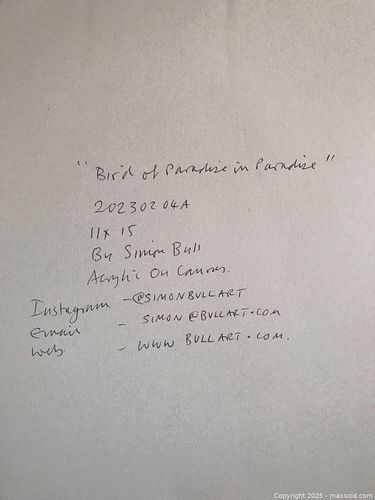 "Bird of Paradise in Paradise"
20230204A
11x 15
By Simon Bull
Acrylic On Canvas.
Instagram - @SIMONBULLART
email - SIMON@BULLART.COM
web. - WWW BULLART.COM.
Copyright 2025 - maxsold.com